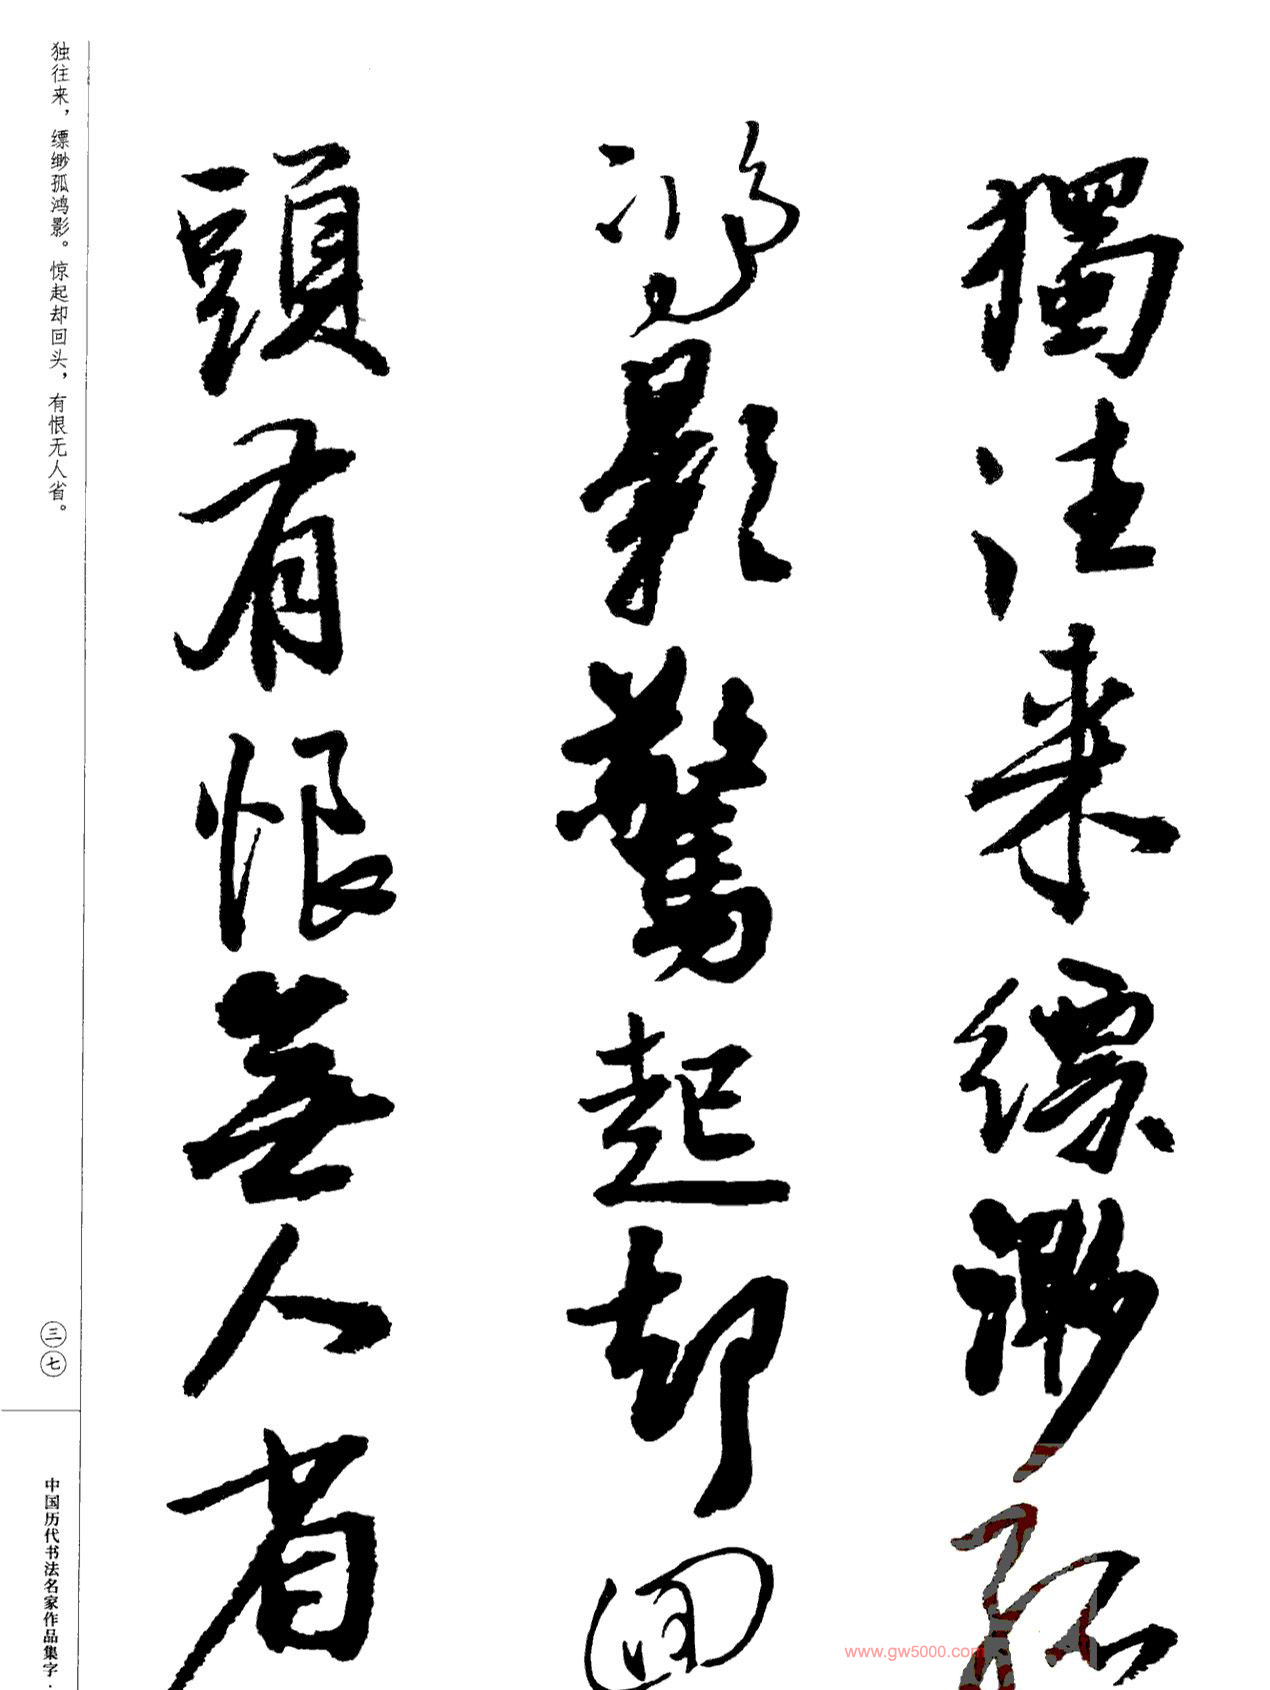 獨往来縹渺孤
鴻影驚起却迴
頭有恨無人省
独往来，缥缈孤鸿影。惊起却回头，有恨无人省。
三七
中国历代书法名家作品集字·
www.gw5000.com